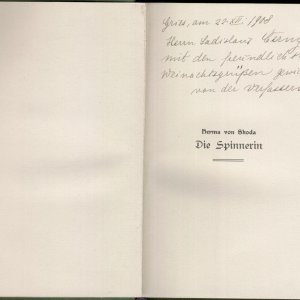 Gries, am 20. XII. 1908
Herrn Ladislaus
mit den freundlichst
Weinachtsgrüßen
von der Verfassers
Herma von Skoda
Die Spinnerin